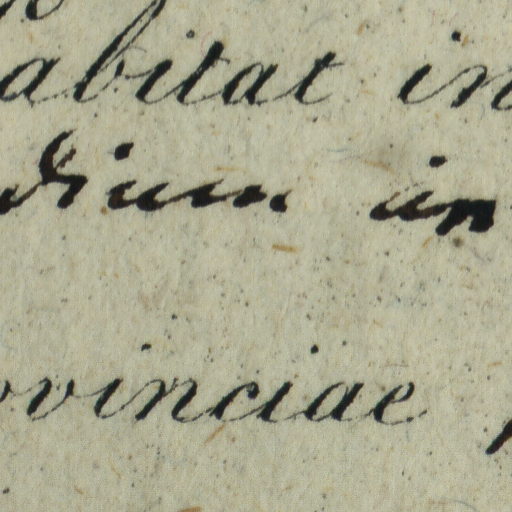 abitat in
dium in
ovinciae